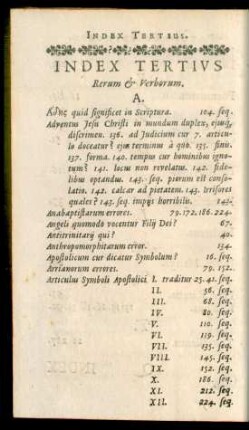 INDEX TERTIUS.
INDEX TERTIVS
Rerum & Verborum.
A.
quid significet in Scriptura. 104. seq.
Adventus Jesu Christi in mundum duplex, ejusq;
discrimen. 136. ad Judicium cur 7. articu-
lo doceatur? ejus terminus à quo. 135. finis.
137. forma. 140. tempus cur hominibus igno-
tum? 141. locus non revelatus. 142. fide-
libus optandus. 143. seq. piorum est conso-
latio. 142. calcar ad pietatem. 143. irrisores
quales? 143. seq. impijs horribilis. 143.
Anabaptistarum errores. 79. 172. 186. 224.
Angeli quomodo vocentur Filij Dei? 67.
Antitrinitarij qui? 40.
Anthropomorphitarum error. 134.
Apostolicum cur dicatur Symbolum? 16. seq.
Arrianorum errores. 79. 132.
Articulus Symboli Apostolici I. traditur 25. 41. seq.
II. 56. seq.
III. 68. seq.
IV. 80. seq.
V. 110. seq.
VI. 119. seq.
VII. 135. seq.
VIII. 145. seq.
IX. 152. seq.
X. 186. seq.
XI. 212. seq.
XII. 224. seq.